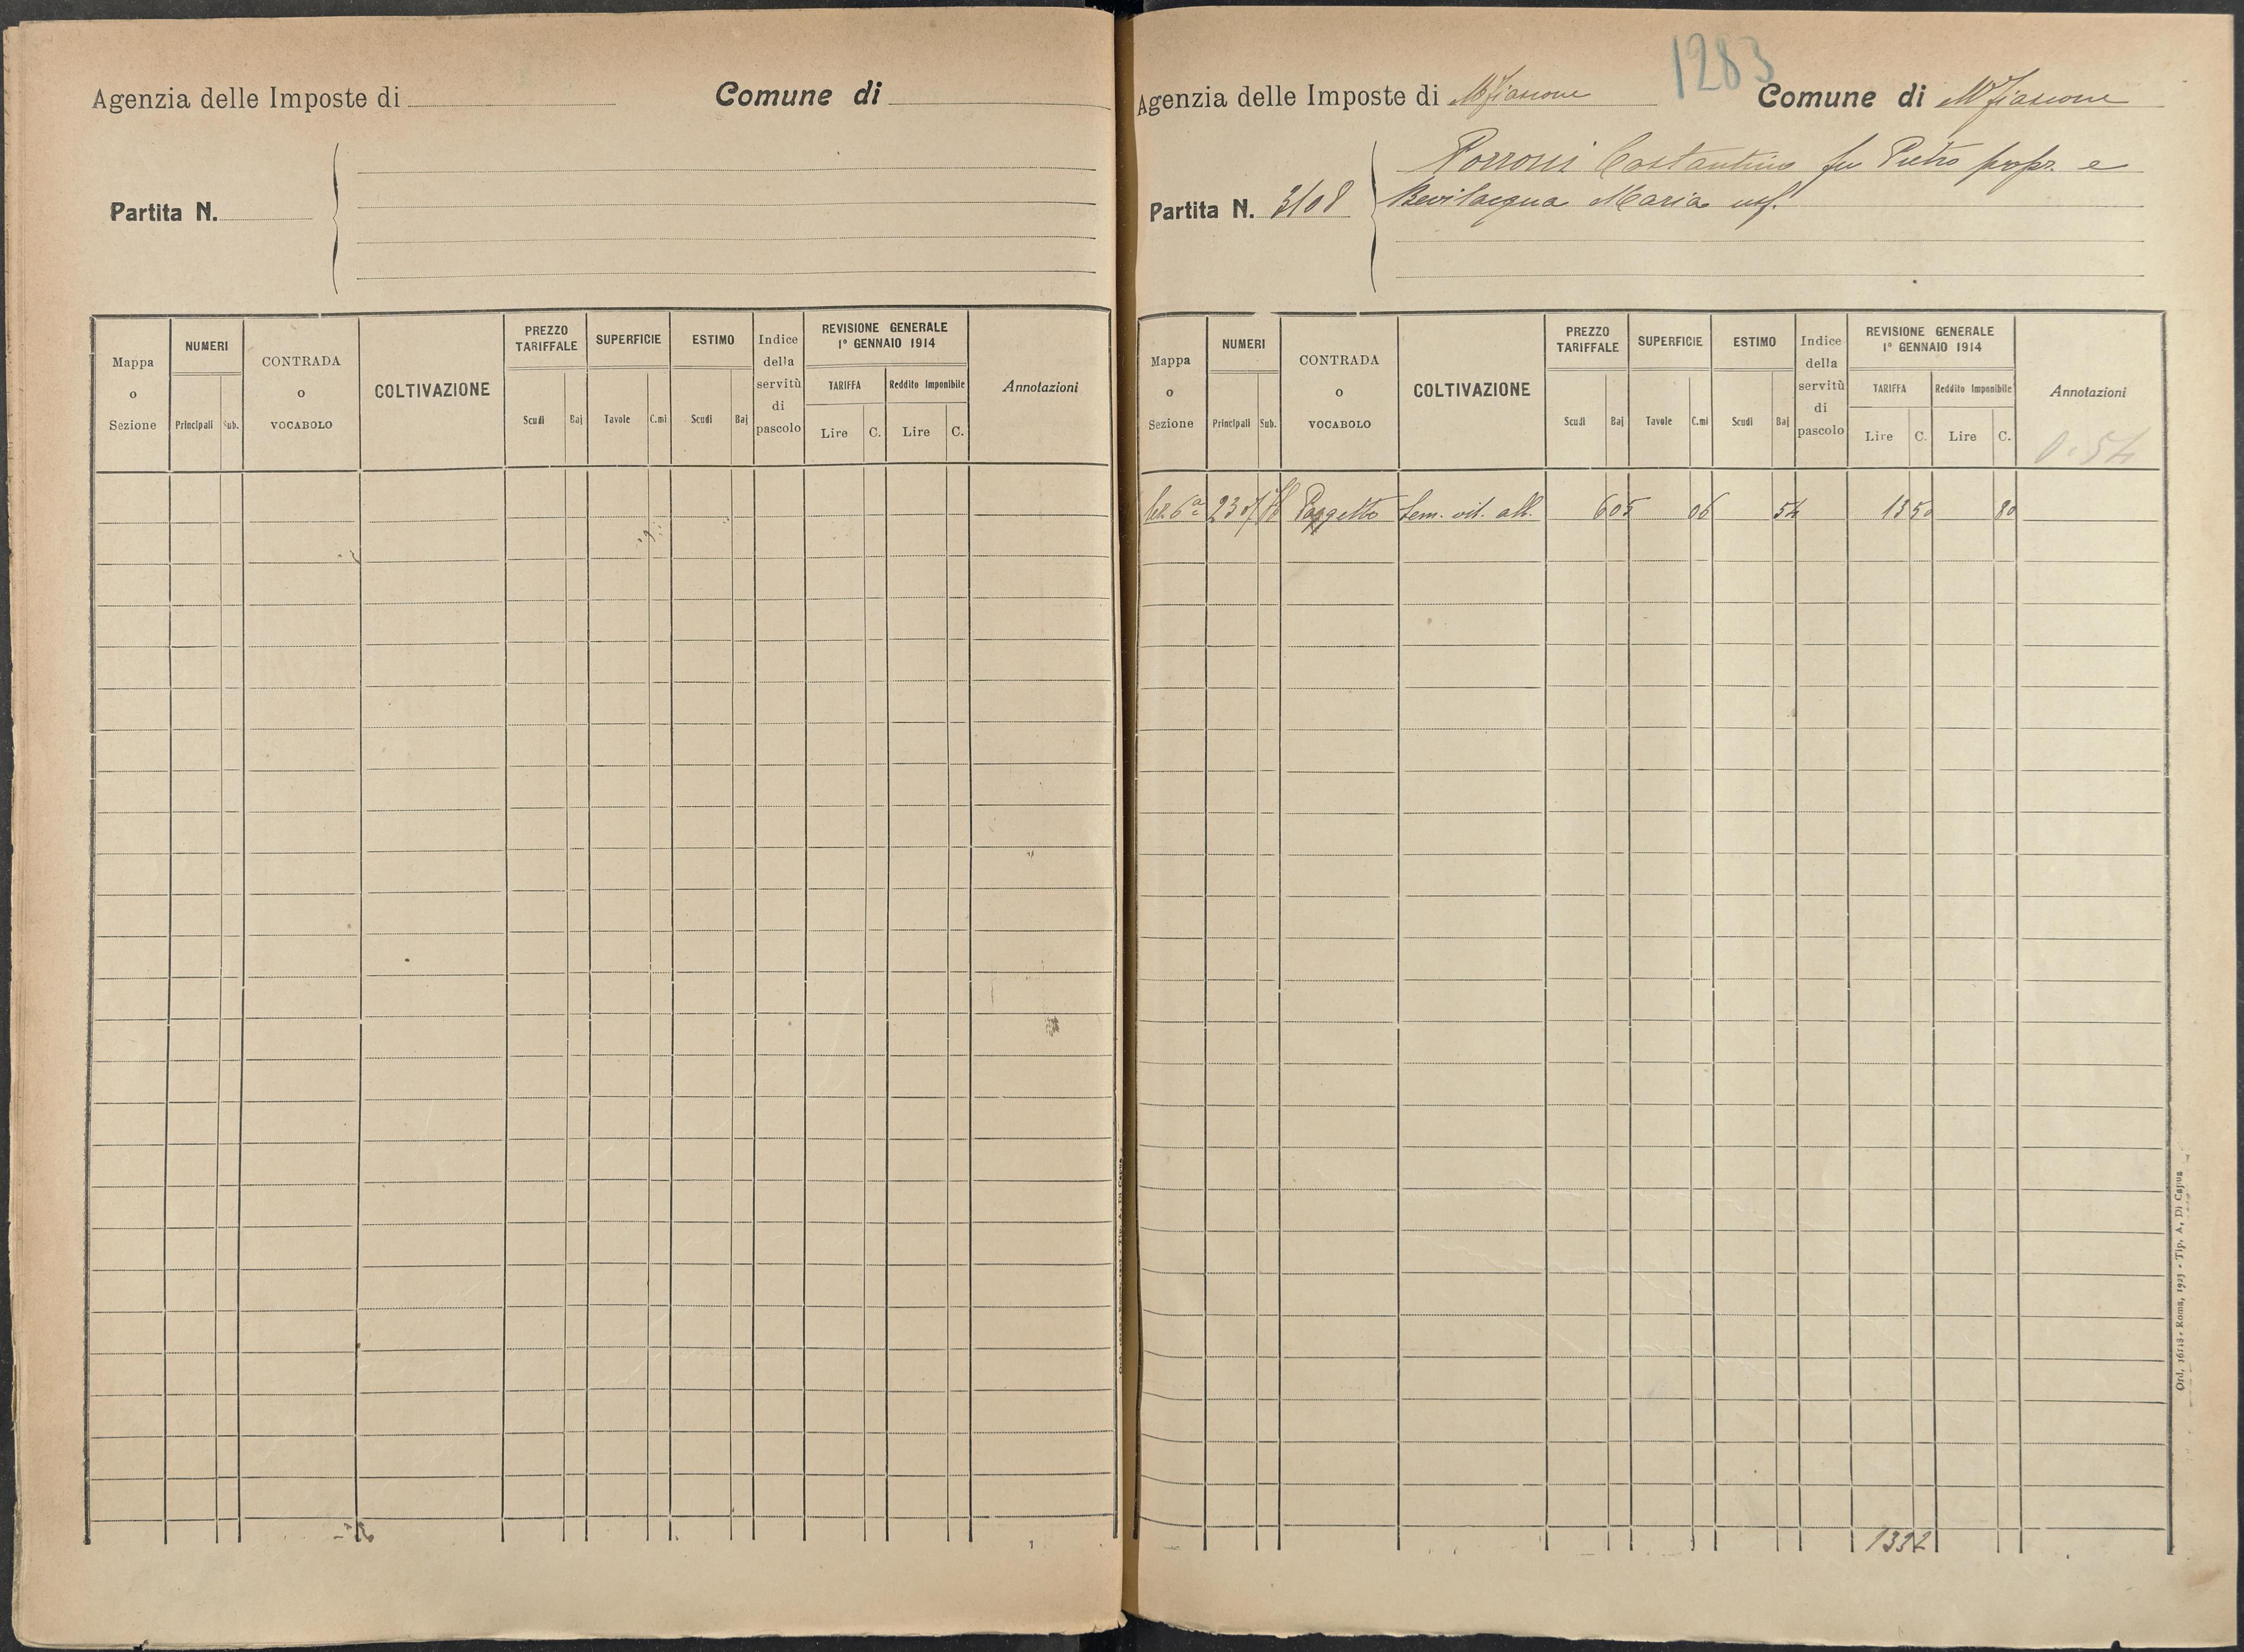 Agenzia delle Imposte di
Comune di
Partita N.
Mappa o Sezione
NUMERI
Principali Sub.
CONTRADA o VOCABOLO
COLTIVAZIONE
PREZZO TARIFFALE
Scudi Baj
SUPERFICIE
Tavole C.mi
ESTIMO
Scudi Baj
Indice della servitù di pascolo
REVISIONE GENERALE
1° GENNAIO 1914
TARIFFA
Lire C.
Reddito Imponibile
Lire C.
Annotazioni
1283
Agenzia delle Imposte di Mfiascone
Comune di Mfiascone
Partita N. 3108
Porroni Costantino fu Pietro propr. e
Bevilacqua Maria usf.
Mappa o Sezione
NUMERI
Principali Sub.
CONTRADA o VOCABOLO
COLTIVAZIONE
PREZZO TARIFFALE
Scudi Baj
SUPERFICIE
Tavole C.mi
ESTIMO
Scudi Baj
Indice della servitù di pascolo
REVISIONE GENERALE
1° GENNAIO 1914
TARIFFA
Lire C.
Reddito Imponibile
Lire C.
Annotazioni
0.54
6ª Poggetto Sem. vit. alb. 6 05 06 54 13 50 80
1392
Ord. 16118 - Roma, 1923 - Tip. A. Di Capua